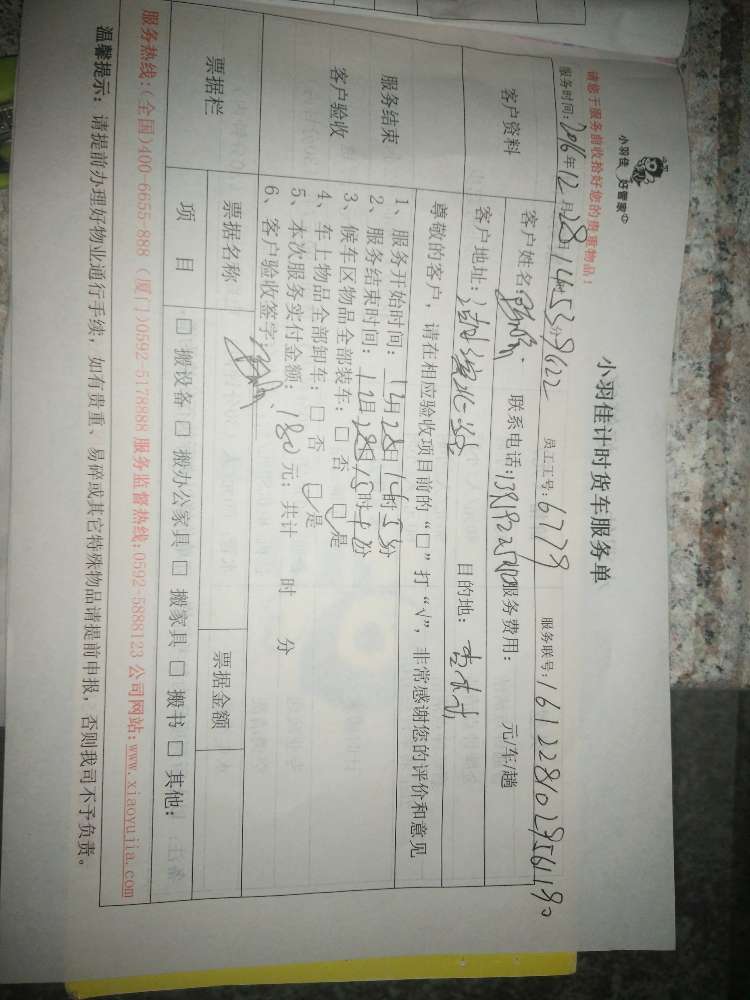 小羽佳 好管家
小羽佳计时货车服务单
请您于服务前收拾好您的贵重物品!
服务时间: 2016年12月28日14时53分 员工工号: 6779 服务联号:
客户资料
客户姓名: 联系电话: 服务费用: 元/车/趟
客户地址: 目的地:
服务结束
客户验收
尊敬的客户，请在相应验收项目前的“□”打“√”，非常感谢您的评价和意见
1、服务开始时间: 12月28日14时53分
2、服务结束时间: 12月28日15时
3、候车区物品全部装车: □ 否 □ 是
4、车上物品全部卸车: □ 否 □ 是
5、本次服务实付金额: 180元; 共计 时 分
6、客户验收签字:
票据栏 票据名称 票据金额
项 目 □ 搬设备 □ 搬办公家具 □ 搬家具 □ 搬书 □ 其他:
服务热线:(全国)400-6655-888 (厦门)0592-5178888 服务监督热线:0592-5888123 公司网站:www.xiaoyujia.com
温馨提示: 请提前办理好物业通行手续，如有贵重、易碎或其它特殊物品请提前申报，否则我司不予负责。